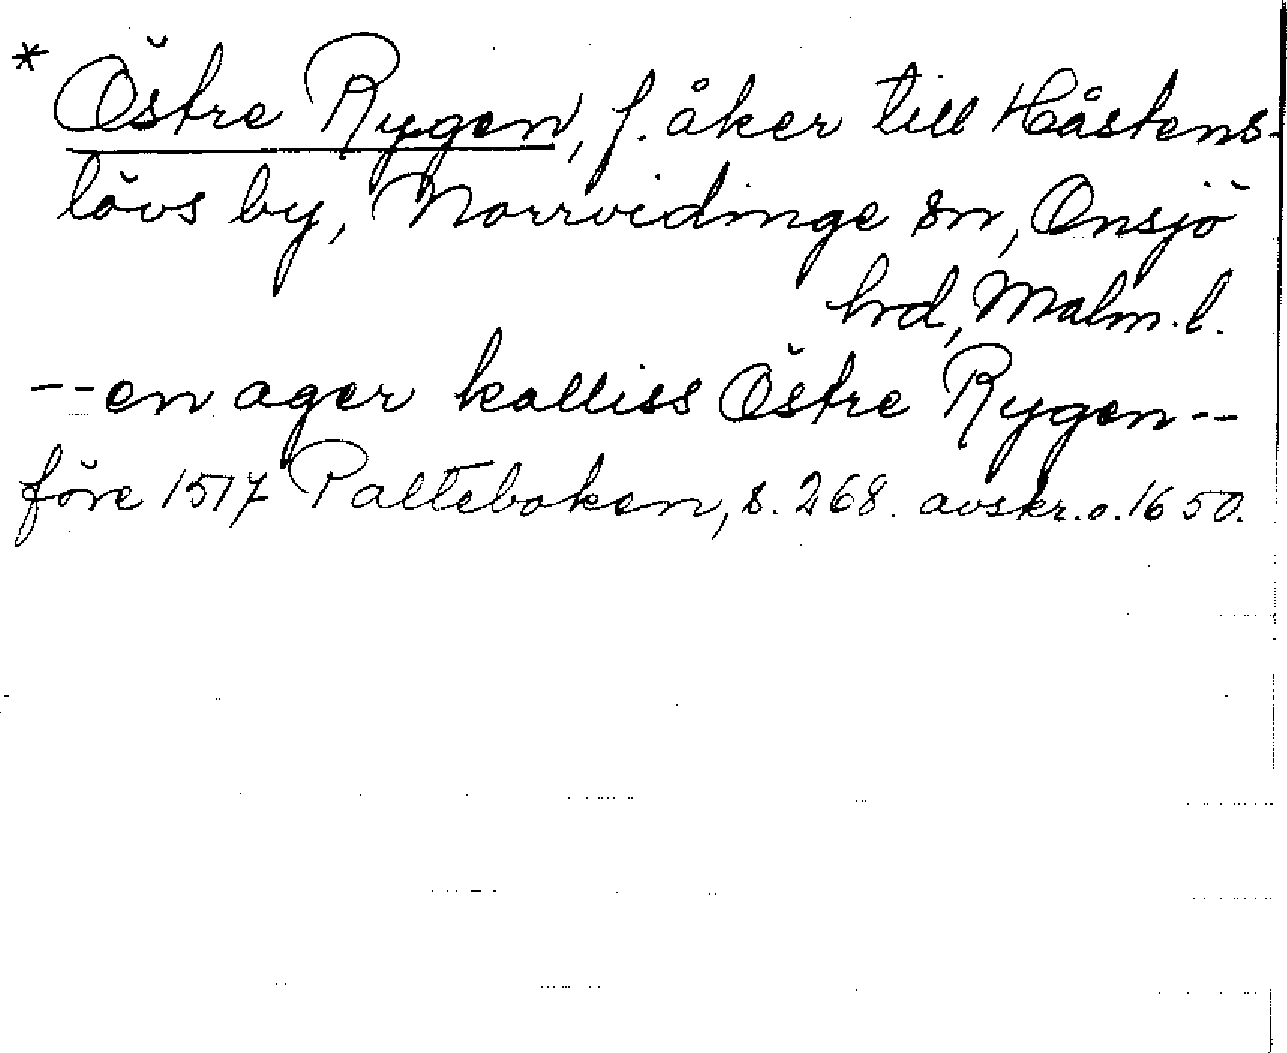 * Östre Rygen, f. åker till Håstens-
lövs by, Norrvidinge sn, Onsjö
hrd, Malm. l.
-- en ager kalliss Östre Rygen --
före 1517 Palteboken, s. 268. avskr. o. 1650.